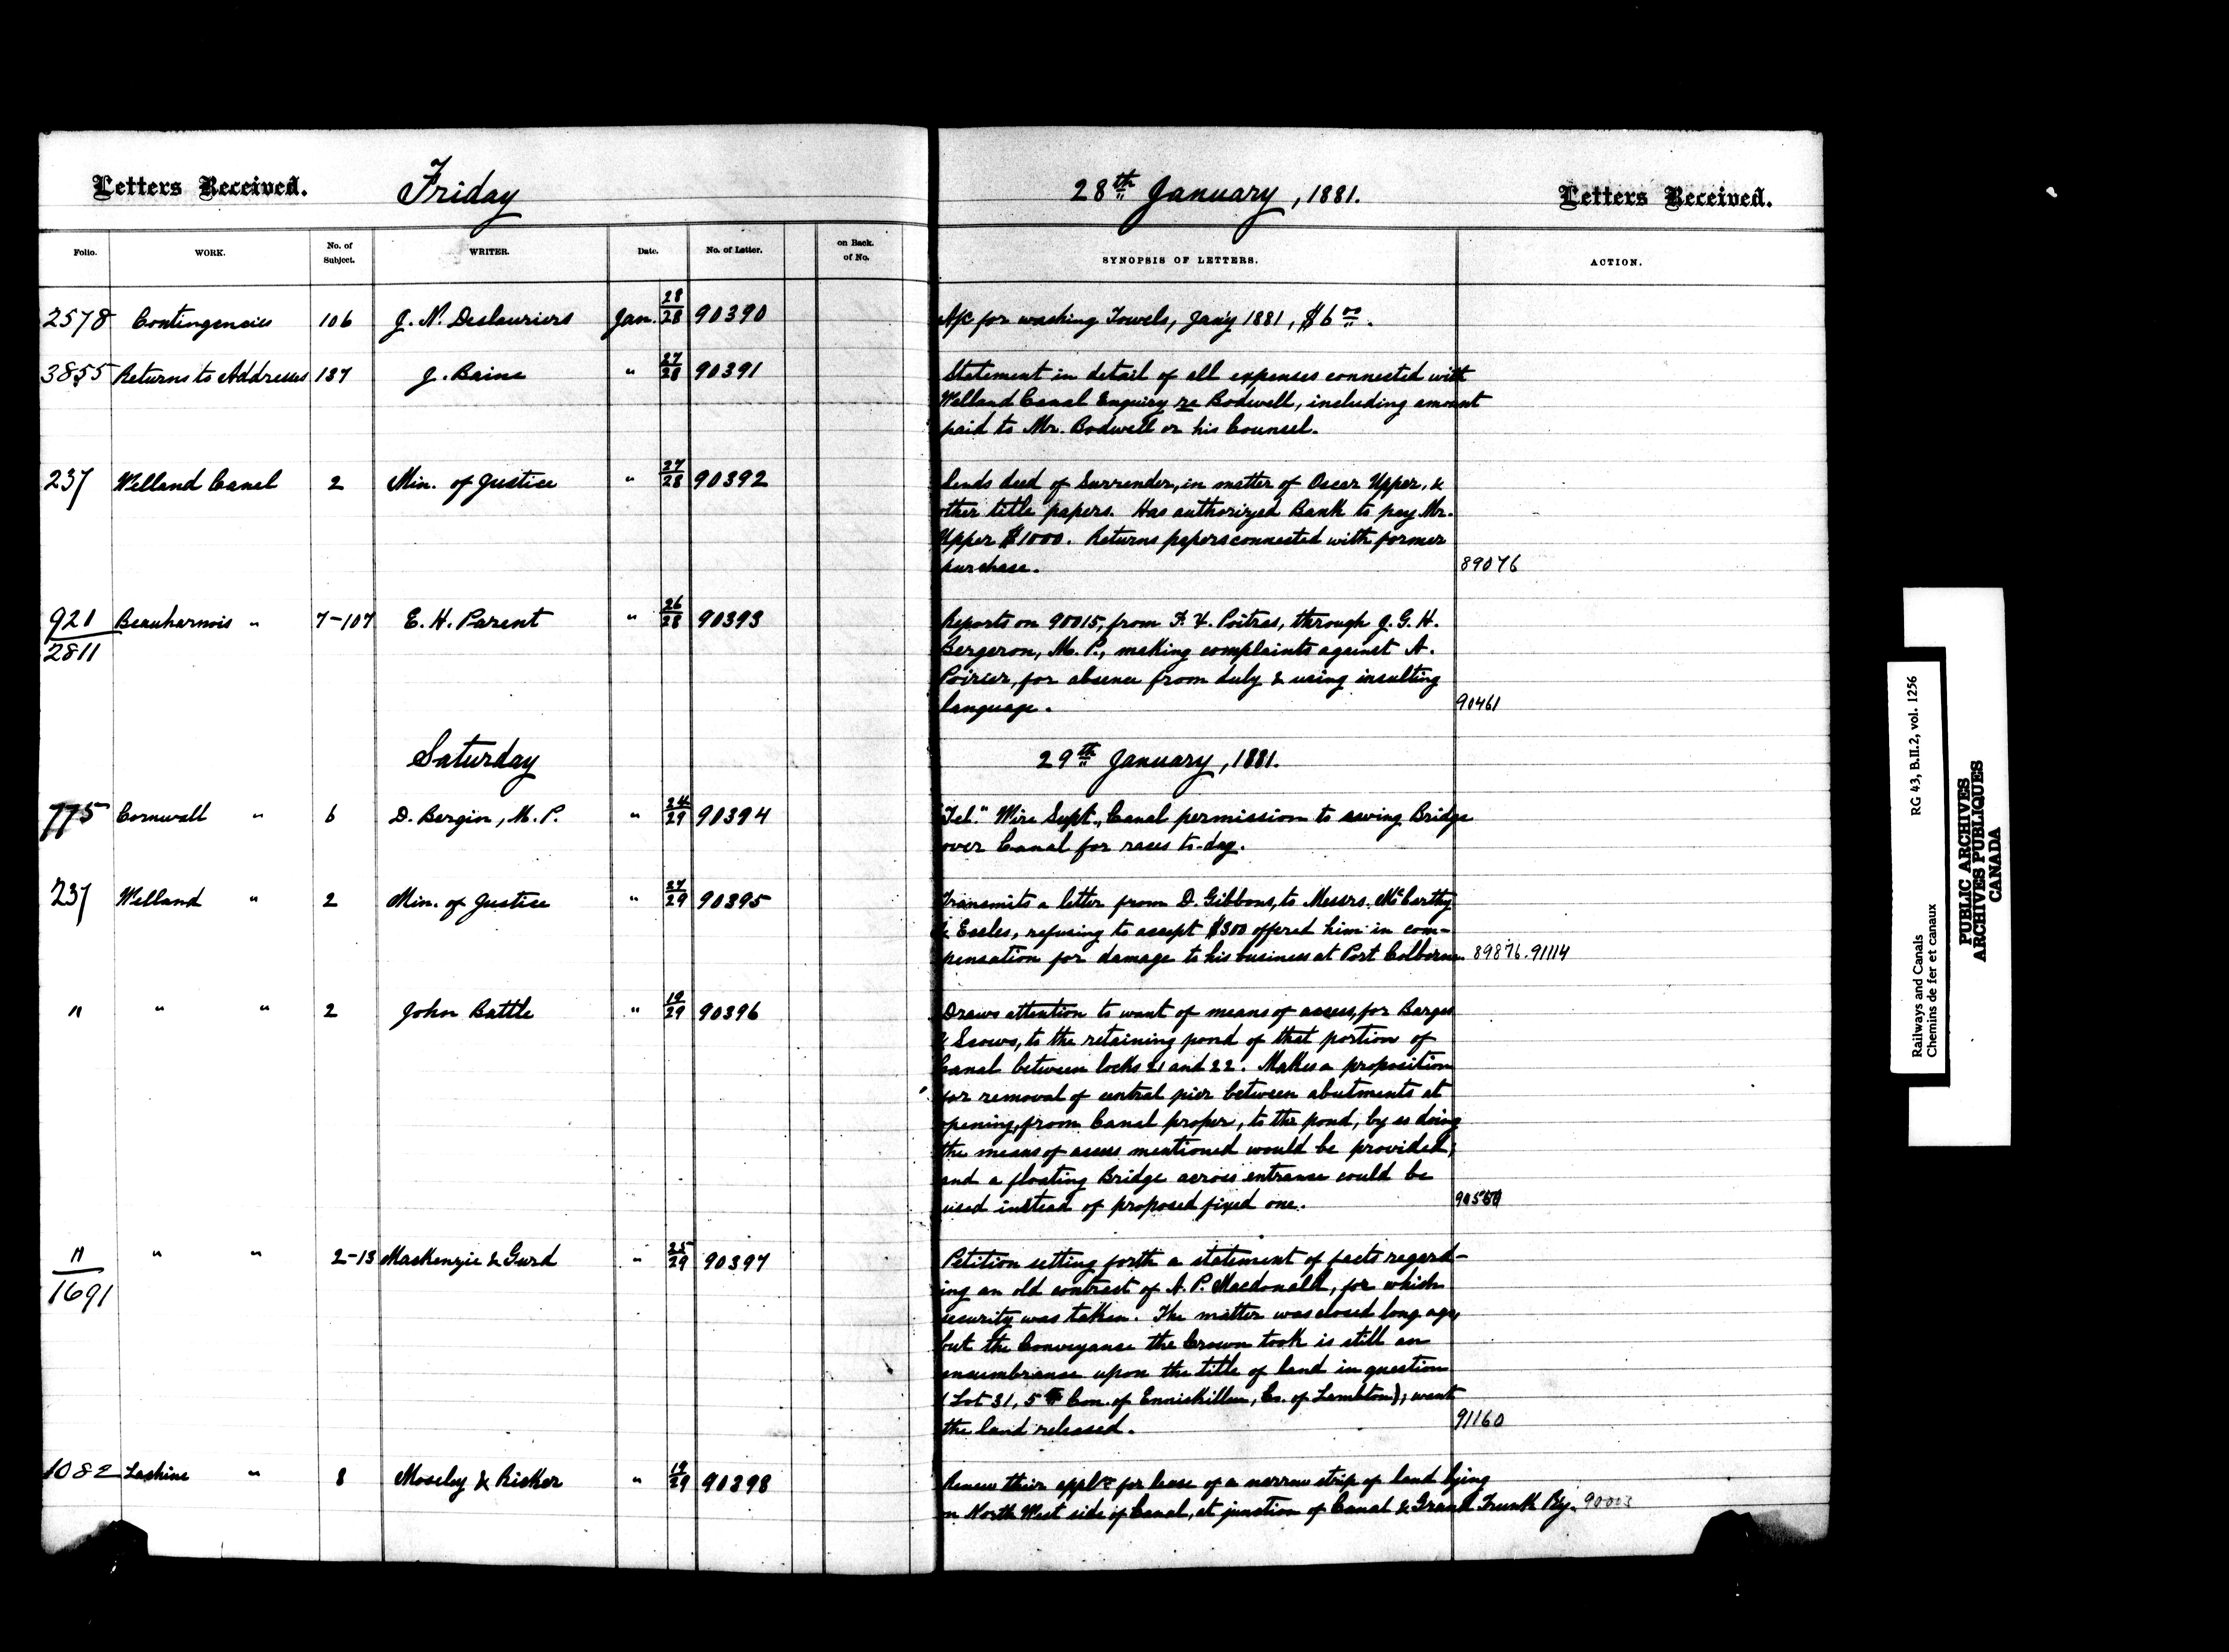 Letters Received. Friday 28th January, 1881. Letters Received.
Folio. WORK. No. of Subject. WRITER. Date. No. of Letter. on Back. of No. SYNOPSIS OF LETTERS. ACTION.
2578 Contingencies 106 J. N. Deslauriers Jan. 28/28 90390 A/c for washing Towels, Jan'y 1881, $6 00.
3855 Returns to Addresses 137 J. Baine " 27/28 90391 Statement in detail of all expenses connected with
Welland Canal Enquiry re Bodwell, including amount
paid to Mr. Bodwell or his Counsel.
237 Welland Canal 2 Min. of Justice " 27/28 90392 Sends deed of Surrender, in matter of Oscar Upper, &
other title papers. Has authorized Bank to pay Mr.
Upper $1000. Returns papers connected with former
purchase. 89076
921/2811 Beauharnois " 7-107 E. H. Parent " 26/28 90393 Reports on 90015, from F. X. Poitras, through J. G. H.
Bergeron, M. P., making complaints against A.
Poirier, for absence from duty & using insulting
language. 90461
Saturday 29th January, 1881.
775 Cornwall " 6 D. Bergin, M. P. " 24/29 90394 "Tel." Wire Supt., Canal permission to swing Bridge
over Canal for races to-day.
237 Welland " 2 Min. of Justice " 27/29 90395 Transmits a letter from D. Gibbons, to Messrs. McCarthy
& Eccles, refusing to accept $300 offered him in com-
pensation for damage to his business at Port Colborne. 89876. 91114
" " " 2 John Battle " 19/29 90396 Draws attention to want of means of access, for Barges
& Scows, to the retaining pond of that portion of
Canal between locks 21 and 22. Makes a proposition
for removal of central pier between abutments at
opening, from Canal proper, to the pond, by so doing
the means of access mentioned would be provided,
and a floating Bridge across entrance could be
used instead of proposed fixed one.
"/1691 " " 2-13 Mackenzie & Gurd " 25/29 90397 Petition setting forth a statement of facts regard-
ing an old contract of A. P. Macdonald, for which
security was taken. The matter was closed long ago,
but the Conveyance the Crown took is still an
encumbrance upon the title of land in question
(Lot 31, 5th Con. of Enniskillen, Co. of Lambton); want
the land released. 91160
1082 Lachine " 8 Moseley & Ricker " 19/29 90398 Renew their appl'n for lease of a narrow strip of land lying
on North West side of Canal, at junction of Canal & Grand Trunk Ry. 90003
Railways and Canals RG 43, B.II.2, vol. 1256
Chemins de fer et canaux
PUBLIC ARCHIVES
ARCHIVES PUBLIQUES
CANADA